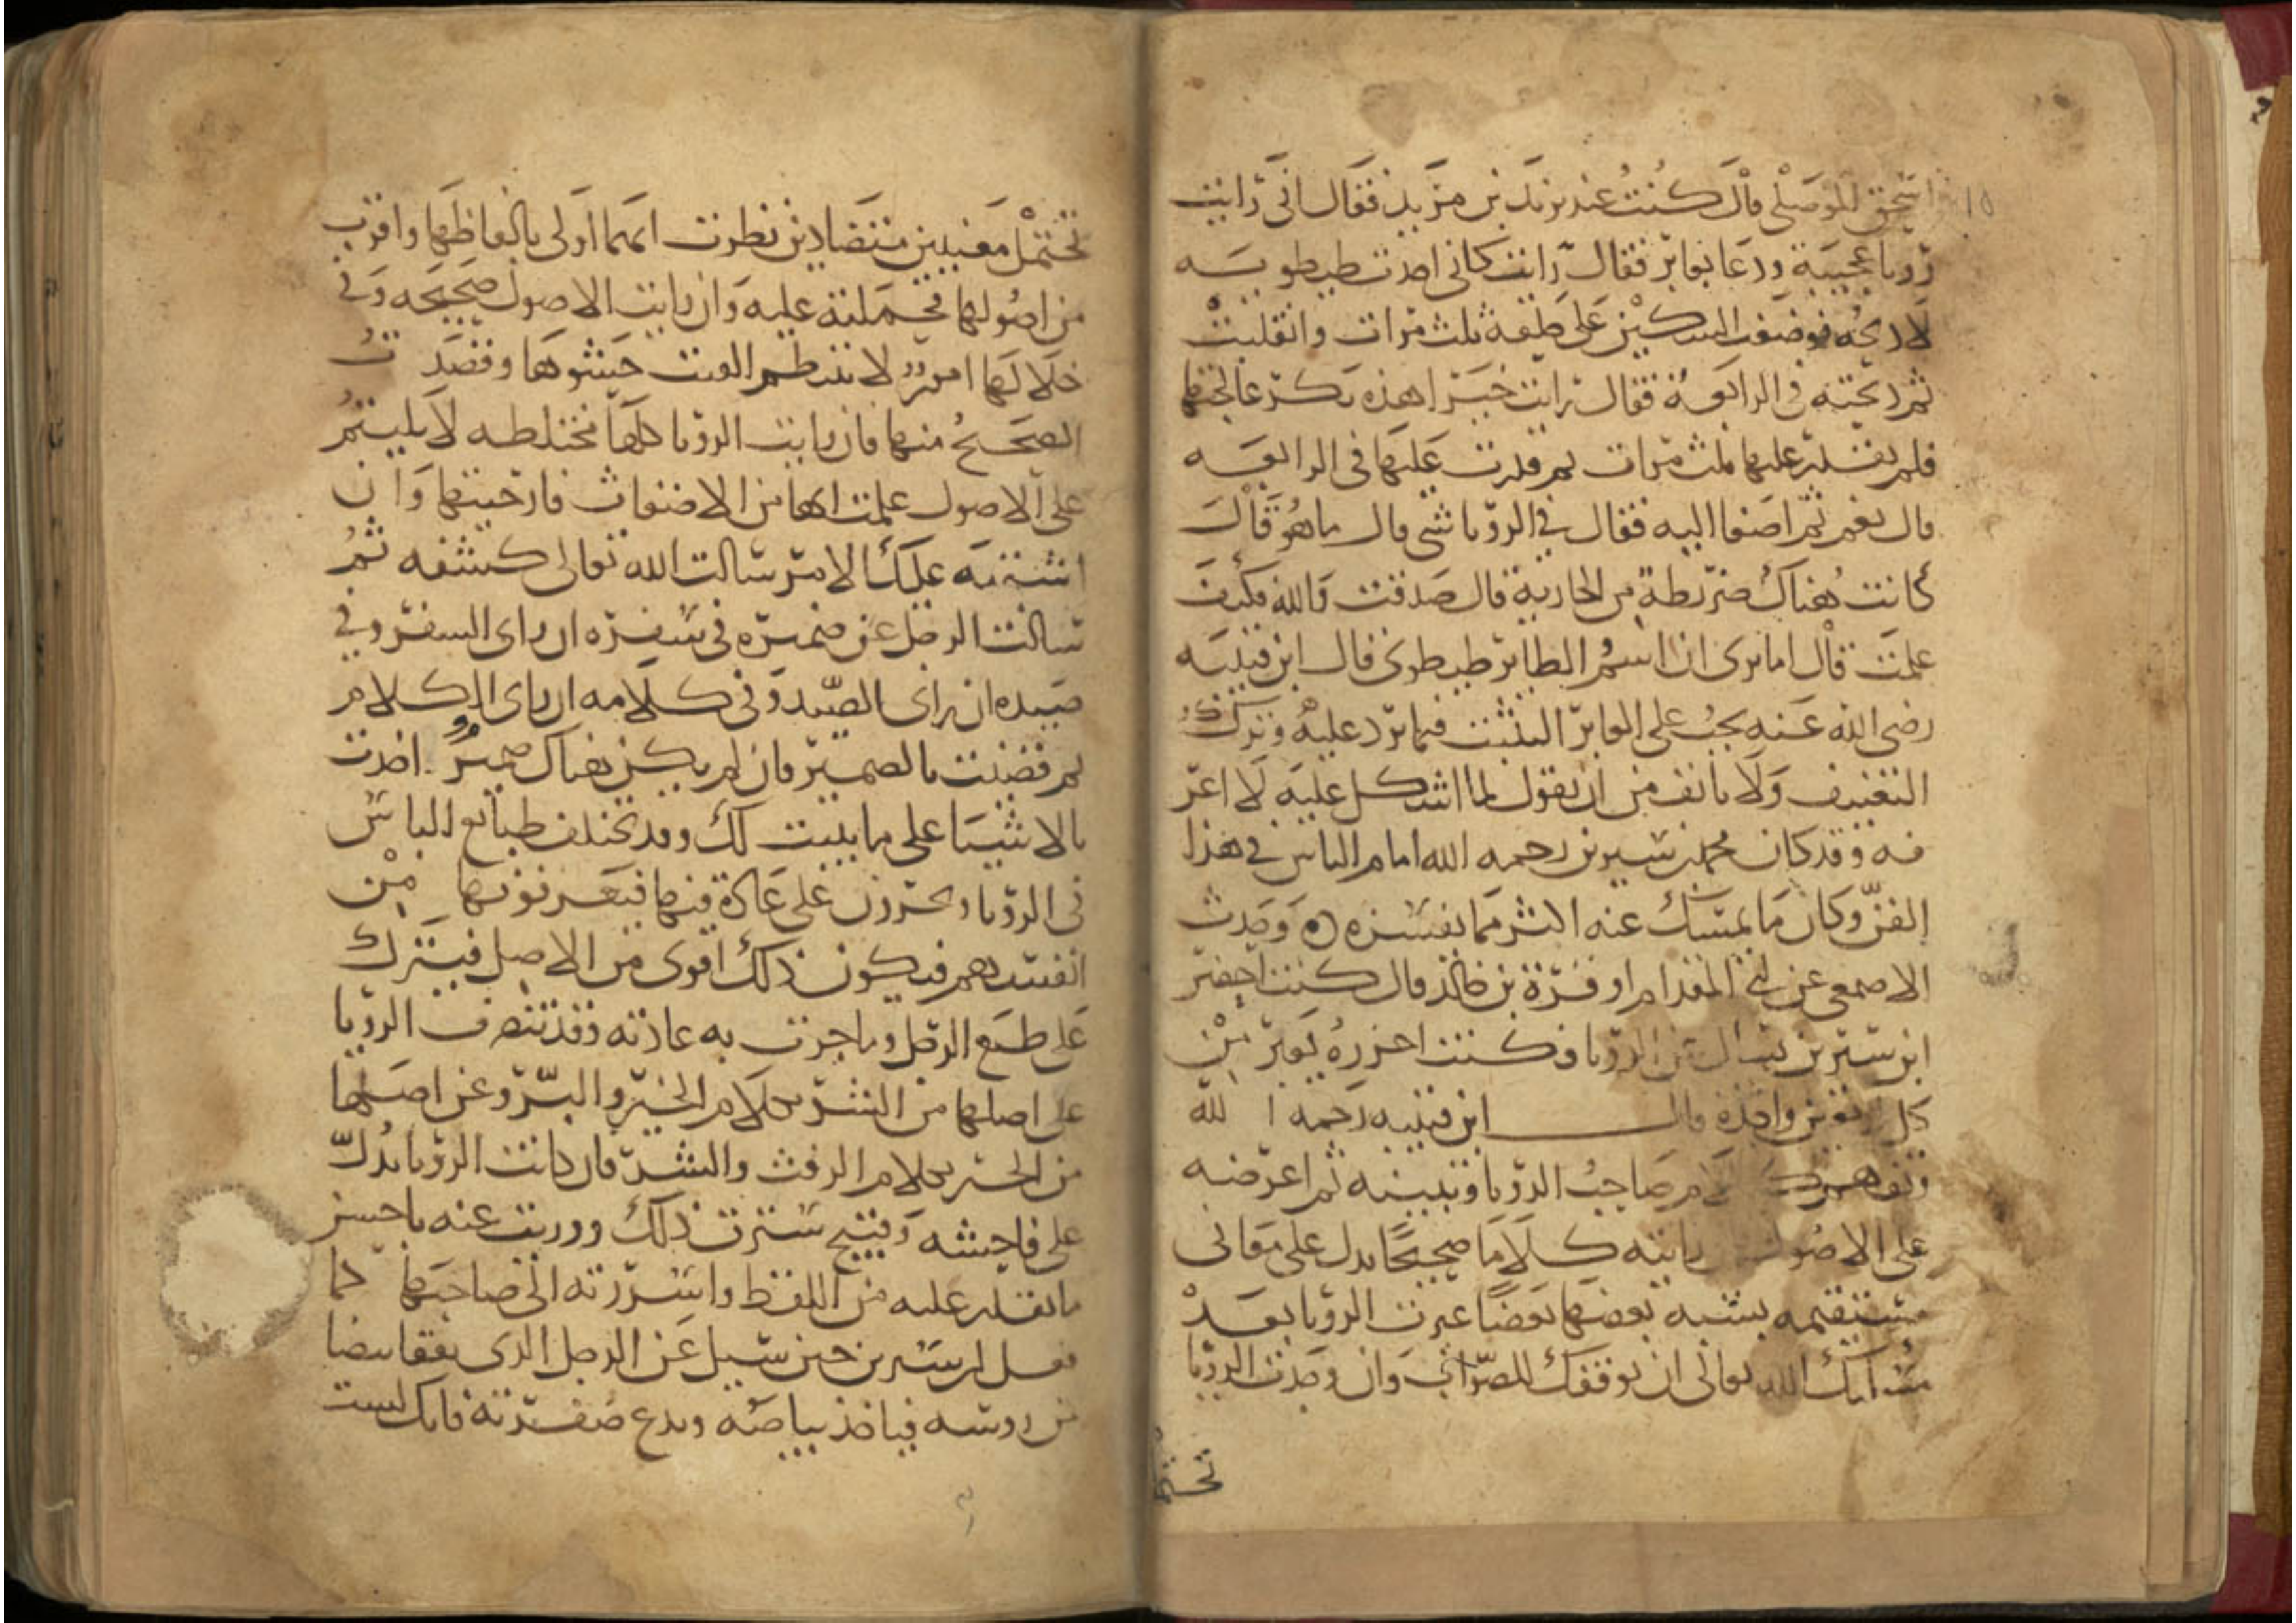 ١٥
اسحق الموصلى قال كنت عند يزيد بن مزيد فقال انى رايت
رويا عجيبة ودعا بعابر فقال رايت كانى اخذت طيطويه
لاذبحه فوضعت السكين على حلقه ثلث مرات وانقلبت
ثم ذبحته فى الرابعة فقال رايت خيرا هذه بكر عالجتها
فلم تقدر عليها ثلث مرات ثم قدرت عليها فى الرابعه
قال نعم ثم اصغا اليه فقال فى الرويا شى قال ما هو قال
كانت هناك ضرطة من الجارية قال صدقت والله فكيف
علمت قال اما ترى ان اسم الطاير طيطوى قال ابن قتيبه
رضى الله عنه يجب على العابر التثبت فيما يرد عليه وترك
التعنيف ولا يانف من ان يقول لما اشكل عليه لا اعر
فه وقد كان محمد بن سيرين رحمه الله امام الناس فى هذا
الفن وكان ما يمسك عنه اكثر مما يفسره ۞ وحدث
الاصمعى عن ابى المقدام او قرة بن خالد قال كنت احضر
ابن سيرين يسال عن الرويا فكنت احزره يعبر من
كل اربعين واحدة قال ابن قتيبه رحمه الله
وتفهم كلام صاحب الرويا وتبينه ثم اعرضه
على الاصول رايته كلاما صحيحا يدل على معانى
مستقيمه يشبه بعضها بعضا عبرت الرويا بعد
مسالتك الله تعالى ان يوفقك للصواب وان وجدت الرويا
تحتمل
تحتمل معنيين متضادين نظرت ايهما اولى بالفاظها واقرب
من اصولها فحملته عليه وان رايت الاصول صحيحه وفى
خلالها امور لا تنتظم القيت حشوها وقصدت
الصحيح منها فان رايت الرويا كلها مختلطه لا يلتيم
على الاصول علمت انها من الاضغاث فارجيتها وان
اشتبه عليك الامر سالت الله تعالى كشفه ثم
سالت الرجل عن ضميره فى سفره ان راى السفر وفى
صيده ان راى الصيد وفى كلامه ان راى الكلام
ثم قضيت بالضمير فان لم يكن هناك ضمير اخذت
بالاشيا على ما بينت لك وقد تختلف طبايع الناس
فى الرويا ويجرون على عادة فيها فيعرفونها من
انفسهم فيكون ذلك اقوى من الاصل فيترك
على طبع الرجل وما جرت به عادته وقد تتصرف الرويا
على اصلها من الشر بكلام الخير والبر وعن اصلها
من الخير بكلام الرفث والشر فان كانت الرويا تدل
على فاحشه وقبيح سترت ذلك ووريت عنه باحسن
ما تقدر عليه من اللفظ واسررته الى صاحبها كما
فعل ابن سيرين حين سيل عن الرجل الذى يفقا بيضا
من روسه فياخذ بياضه ويدع صفرته فانك لست